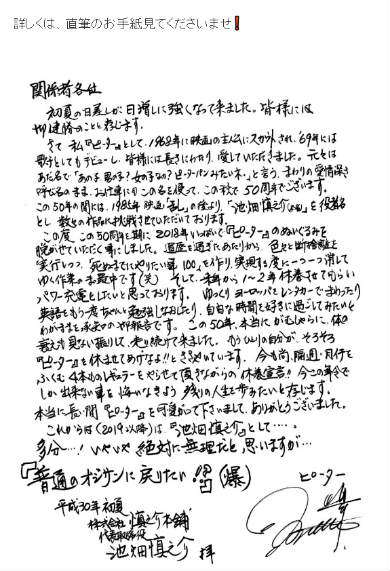 詳しくは、直筆のお手紙見てくださいませ❗
関係者各位
初夏の日差しが日増しに強くなって来ました。皆様には
御健勝のことと存じます。
さて 私『ピーター』として、1968年に映画の主人公にスカウトされ、'69年には
歌手としてもデビューし、皆様には長きにわたり、愛していただきました。元々は
あだ名で「あの子 男の子? 女の子なの? ピーターパンみたいネ…」と言う、まわりの愛情深き
呼び名のまま、お仕事にもこの名を使って、この秋で50周年でございます。
この50年の間には、1985年 映画『乱』の際より、「池畑慎之介」を役者名
とし 数々の作品に挑戦させていただいております。
この度、この50周年を期に 2018年いっぱいで『ピーター』のぬいぐるみを
脱がせていただく事にしました。還暦を過ぎたあたりから、色々と断捨離を
実行しつつ、「死ぬまでにやりたい事100」を作り、実現する度に一つ一つ消して
ゆく作業の真最中です(笑) そして…来年から1〜2年休養させてもらい
パワー充電をしたいと思っております。ゆっくりヨーロッパをレンタカーでまわったり
英語をもう一度ちゃんと勉強しなおしたり、自由な時間を好きに過ごしてみたいと
わがままを承知の御報告です。この50年、本当にがむしゃらに、体の
衰えも見ない振りして、走り続けて来ました。もう1人の自分が、そろそろ
『ピーター』を休ませてあげなよ!!とささやいています。今も尚、隔週・月イチを
ふくむ 4本ものレギュラーをやらせて頂きながらの休養宣言!! 今この年令で
しか出来ない事を 悔いなきよう 残りの人生を歩みたいと存じます。
本当に長い間『ピーター』を可愛がって下さいまして、ありがとうございました。
これからは(2019以降)は、『池畑慎之介』として….
多分…! いやいや 絶対に無理だと思いますが…
『普通のオジサンに戻りたい!!』(爆)
平成30年初夏
株式会社 慎之介本舗
代表取締役
池畑慎之介 拝
ピーター